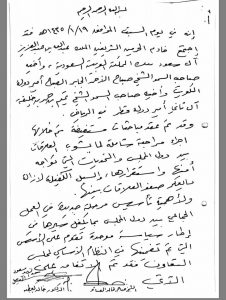 بسم الله الرحمن الرحيم
إنه في يوم السبت الموافق ١٤٣٥/١/١٩هـ فقد
اجتمع خادم الحرمين الشريفين الملك عبدالله بن عبدالعزيز
آل سعود ملك المملكة العربية السعودية، وأخيه
صاحب السمو الشيخ صباح الأحمد الجابر الصباح أمير دولة
الكويت وأخيه صاحب السمو الشيخ تميم بن حمد بن خليفة
آل ثاني أمير دولة قطر في الرياض.
وقد تم عقد مباحثات مستفيضة تم خلالها
إجراء مراجعة شاملة لما يشوب العلاقات
بين دول المجلس والتحديات التي تواجه
أمنها واستقرارها، والسبل الكفيلة لإزالة
ما يعكر صفو العلاقات بينها.
ولأهمية تأسيس مرحلة جديدة في العمل
الجماعي بين دول المجلس بما يكفل سيرها في
إطار سياسة موحدة تقوم على الأسس
التي تم تضمينها في النظام الأساسي لمجلس
التعاون، فقد تم
التالي